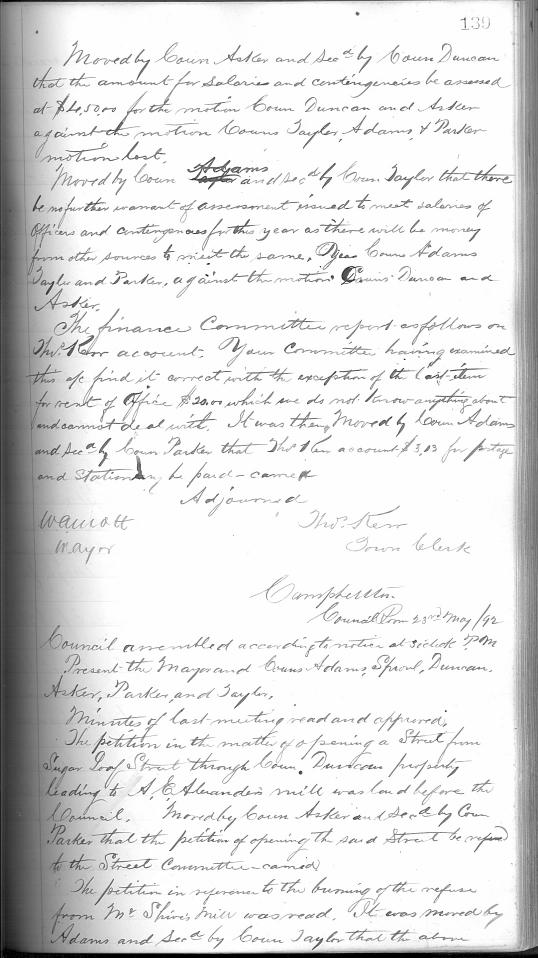 139
Moved by Coun Asker and Secd by Coun Duncan
that the amount for salaries and contingencies be assessed
at for the motion Coun Duncan and Asker
against the motion Couns Taylor, Adams, & Parker
motion lost.
Moved by Coun Adams and Secd by Coun Taylor that there
be no further warrant of assessment issued to meet salaries of
Officers and contingences for this year as there will be money
from other sources to meet the same. Yeas Couns Adams
Taylor and Parker, against the motion Couns Duncan and
Asker.
The finance Committee report as follows on
Thos. Kerr account. Your Committee having examined
this a/c find it correct with the exception of the last item
for rent of Office $20.00 which we do not know anything about
and cannot deal with. It was then Moved by Coun Adams
and Secd by Coun Parker that Thos Kerr account $3.13 for postage
and stationary be paid - carried
Adjourned
W A Mott Thos. Kerr
Mayor Town Clerk
Campbellton
Council Room 23rd May /92
Council assembled according to notice at 3 oclock P.M
Present the Mayor and Couns Adams, Sproul, Duncan,
Asker, Parker, and Taylor.
Minutes of last meeting read and approved.
The petition in the matter of opening a Street from
Sugar Loaf Street through Coun. Duncans property
leading to A. E. Alexanders mill was laid before the
Council. Moved by Coun Asker and Secd by Coun
Parker that the petition of opening the said Street be refered
to the Street Committee - carried
The petition in reference to the burning of the refuse
from Mr Shives Mill was read. It was moved by
Adams and Secd by Coun Taylor that the above